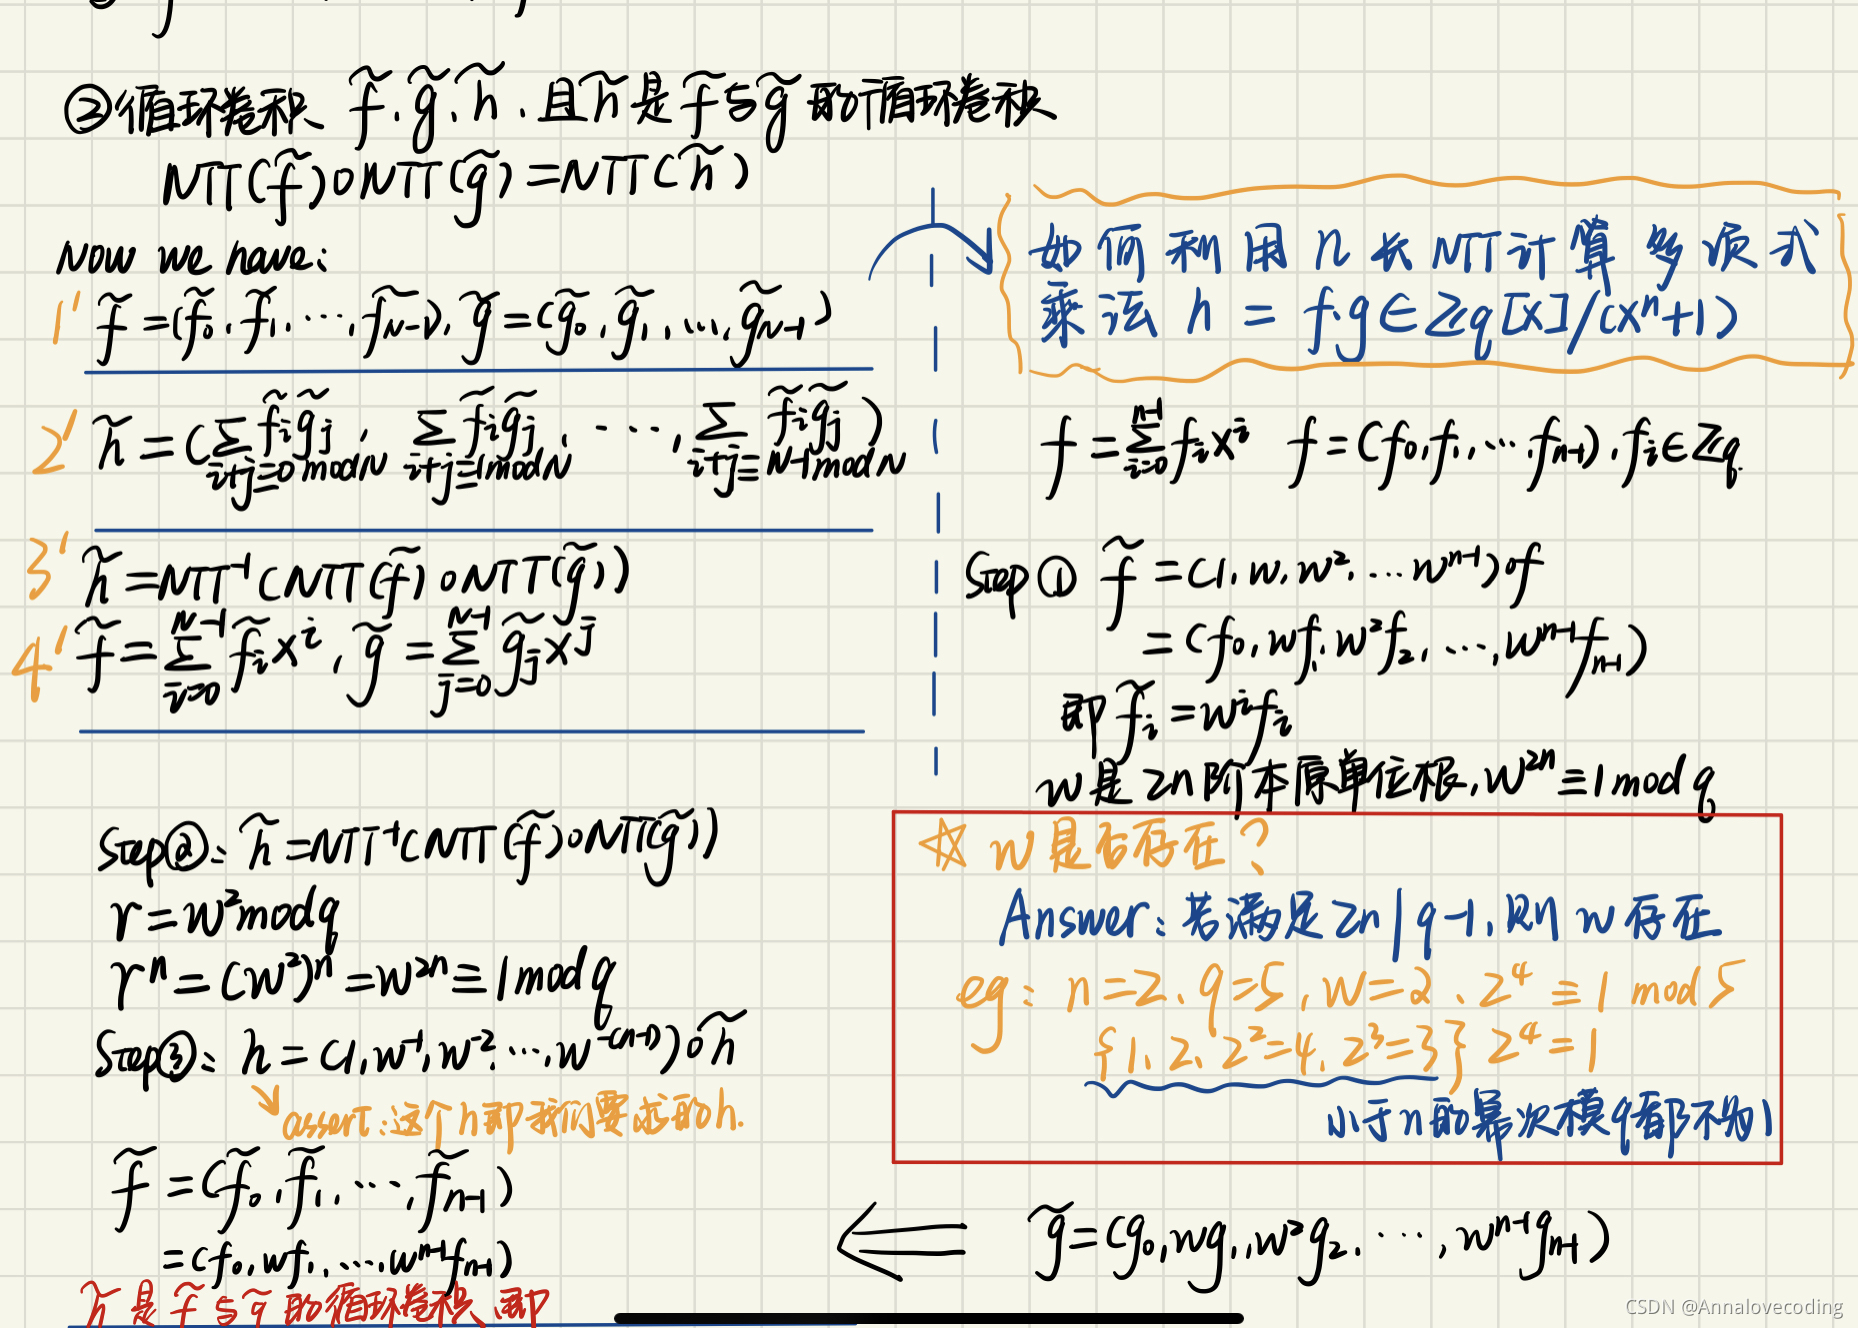 ②循环卷积 f̃.g̃.h̃.且h̃是f̃与g̃的循环卷积
NTT(f̃)∘NTT(g̃)=NTT(h̃)
Now we have:
1' f̃=(f̃₀,f̃₁,…,f̃_{N-1}), g̃=(g̃₀,g̃₁,…,g̃_{N-1})
2' h̃=(∑_{i+j≡0 mod N} f̃ᵢg̃ⱼ, ∑_{i+j≡1 mod N} f̃ᵢg̃ⱼ, …, ∑_{i+j≡N-1 mod N} f̃ᵢg̃ⱼ)
3' h̃=NTT⁻¹(NTT(f̃)∘NTT(g̃))
4' f̃=∑_{i=0}^{N-1} f̃ᵢxⁱ, g̃=∑_{j=0}^{N-1} g̃ⱼxʲ
如何利用n长NTT计算多项式
乘法 h=f·g∈Zq[X]/(Xⁿ+1)
f=∑_{i=0}^{n-1} fᵢxⁱ f=(f₀,f₁,…f_{n-1}),fᵢ∈Zq.
Step① f̃=(1,w,w²,…w^{n-1})∘f
=(f₀,wf₁,w²f₂,…,w^{n-1}f_{n-1})
即f̃ᵢ=wⁱfᵢ
w是2n阶本原单位根,w²ⁿ≡1 mod q
☆ w是否存在?
Answer:若满足2n|q-1,则w存在
eg: n=2、q=5,w=2、2⁴≡1 mod 5
{1、2、2²=4、2³=3} 2⁴=1
小于n的幂次模q都不为1
g̃=(g₀,wg₁,w²g₂,…,w^{n-1}g_{n-1})
Step②: h̃=NTT⁻¹(NTT(f̃)∘NTT(g̃))
r=w² mod q
rⁿ=(w²)ⁿ=w²ⁿ≡1 mod q
Step③: h=(1,w⁻¹,w⁻²,…,w^{-(n-1)})∘h̃
assert:这个h即我们要求的h.
f̃=(f̃₀,f̃₁,…,f̃_{n-1})
=(f₀,wf₁,…,w^{n-1}f_{n-1})
h̃是f̃与g̃的循环卷积、即
CSDN @Annalovecoding